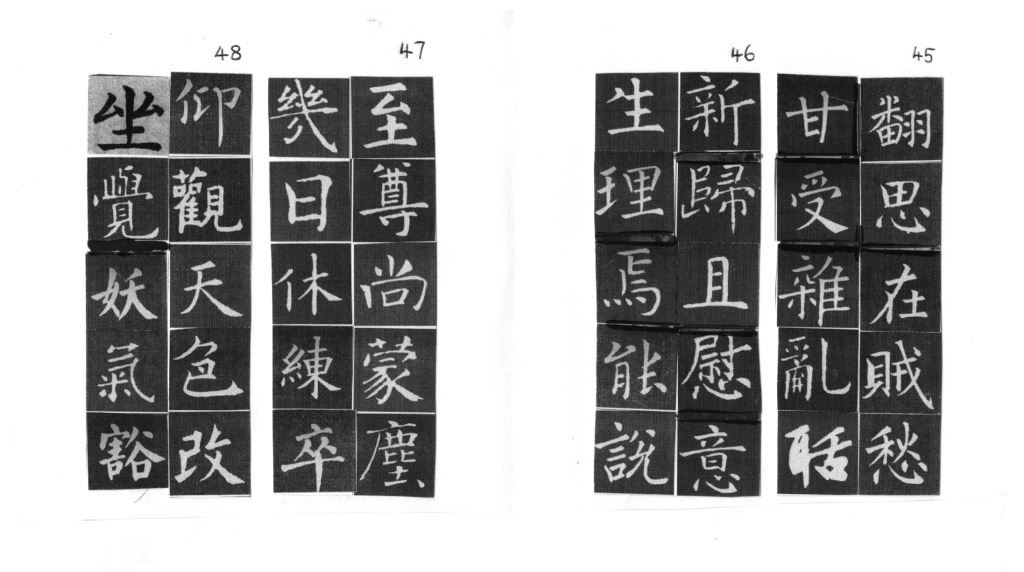 45
翻思在賊愁
甘受雜亂聒
46
新歸且慰意
生理焉能說
47
至尊尚蒙塵
幾日休練卒
48
仰觀天色改
坐覺妖氣豁